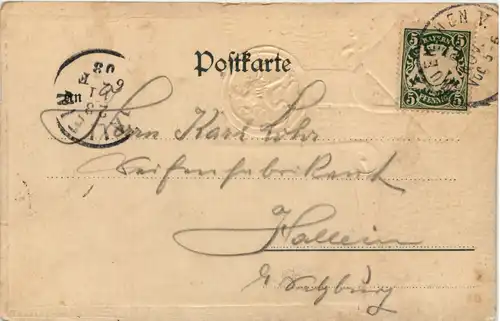 Postkarte
An
Herrn Karl Lohr
Seifenfabrikant
Hallein
b/ Salzburg
5 BAYERN 5
5 PFENNIG 5